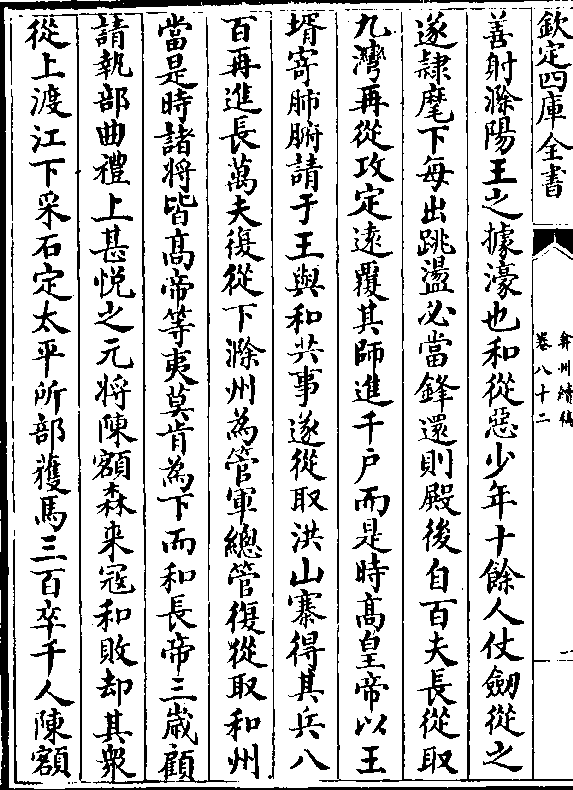 欽定四庫全書
弇州續稿
卷八十二
二
善射滁陽王之據濠也和從惡少年十餘人仗劒從之
遂隷麾下每出跳盪必當鋒還則殿後自百夫長從取
九灣再從攻定遠覆其師進千户而是時髙皇帝以王
壻寄肺腑請于王與和共事遂從取洪山寨得其兵八
百再進長萬夫復從下滁州為管軍總管復從取和州
當是時諸將皆髙帝等夷莫肯為下而和長帝三嵗顧
請執部曲禮上甚悦之元将陳額森来寇和敗却其衆
從上渡江下采石定太平所部獲馬三百卒千人陳額